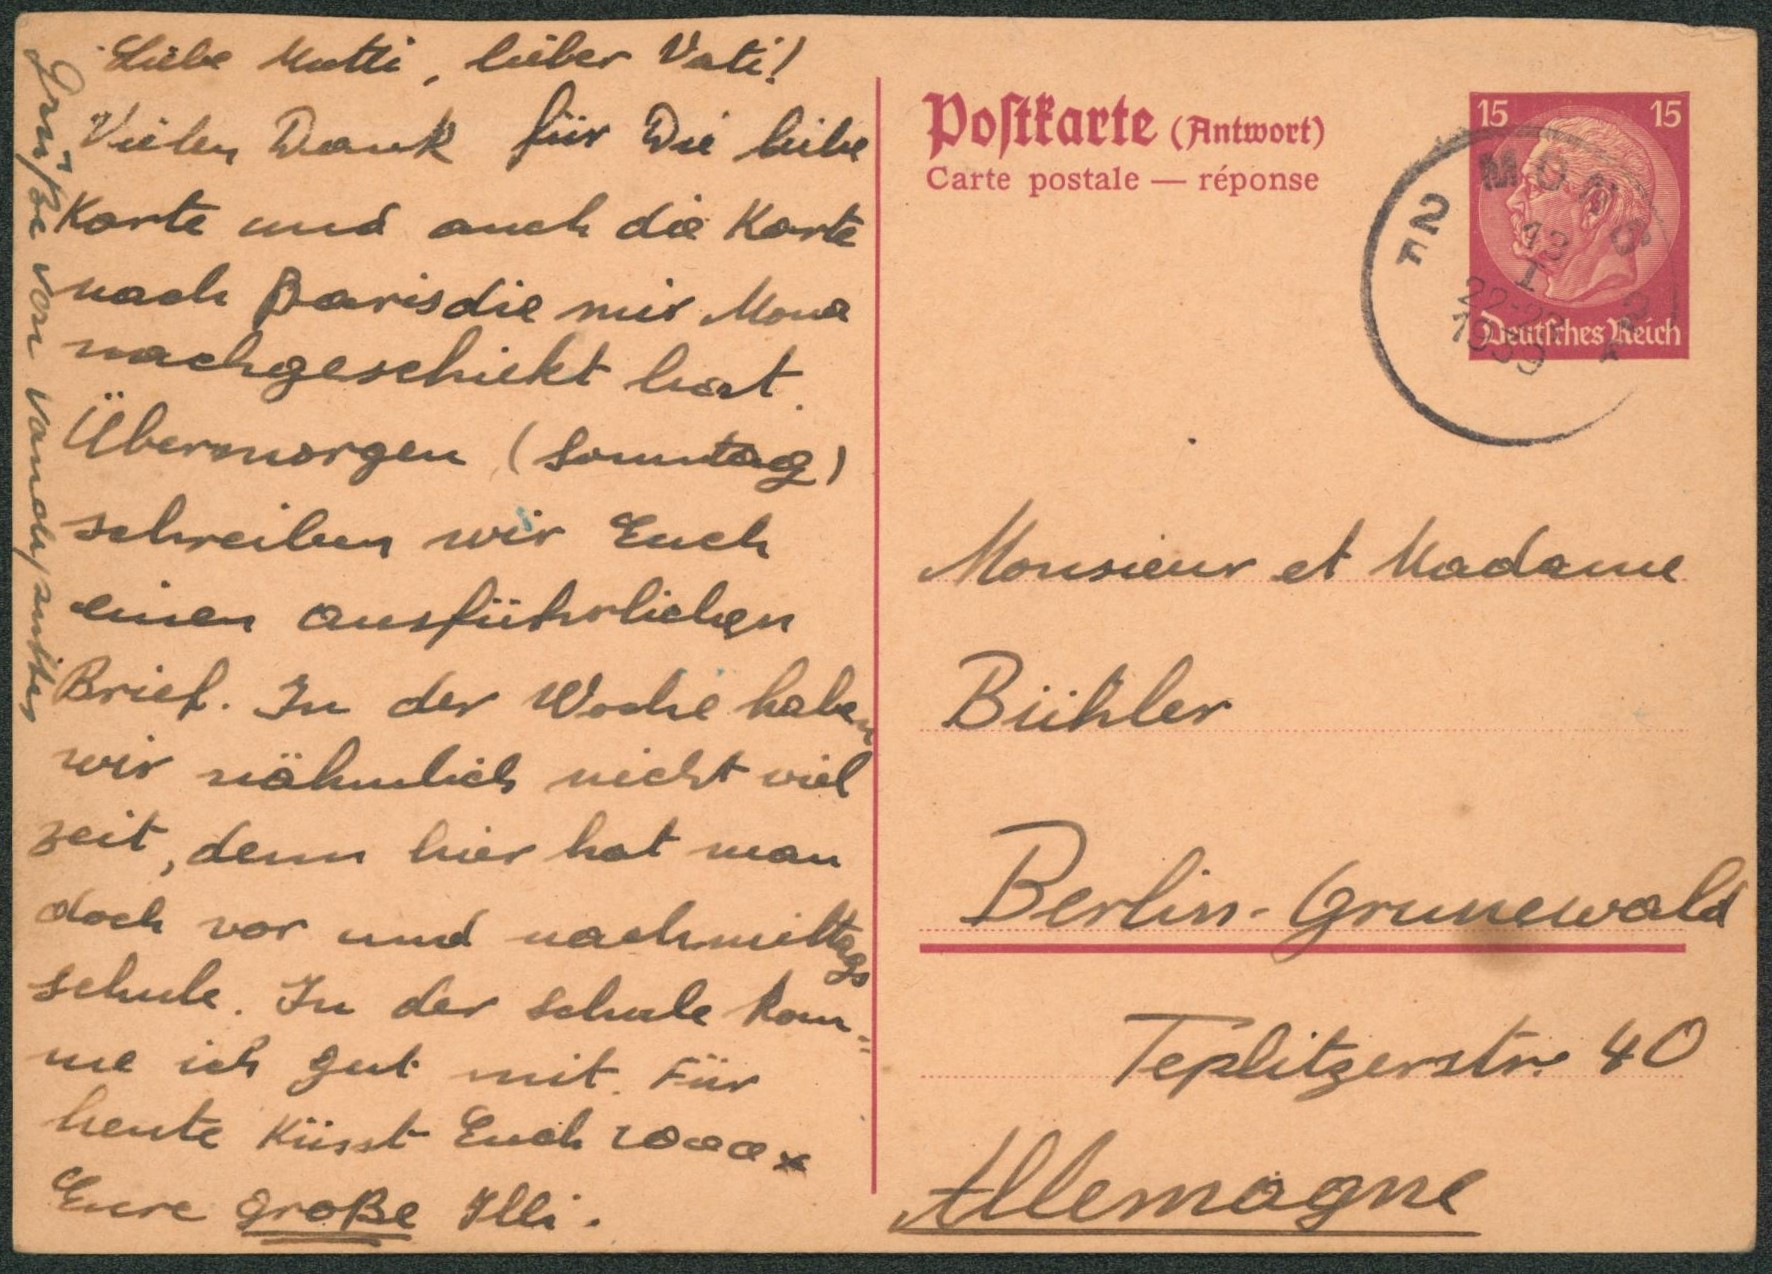 Liebe Mutti, lieber Vati!
Vielen Dank für Die liebe
Karte und auch die Karte
nach Paris die mir Mona
nachgeschickt hat.
Übermorgen (Sonntag)
schreiben wir Euch
einen ausführlichen
Brief. In der Woche haben
wir nähmlich nicht viel
zeit, denn hier hat man
doch vor und nachmittags
schule. In der schule kom=
me ich gut mit. Für
heute küsst Euch 1000 x
Eure große Illi.
Grüße von
Postkarte (Antwort)
Carte postale — réponse
15 15
Deutsches Reich
MONS
2 2
13
I
22-23
1939
Monsieur et Madame
Bühler
Berlin-Grunewald
Teplitzerstr. 40
Allemagne